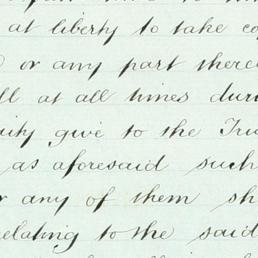 at liberty to take co
or any part there
ll at all times duri
uity give to the Tru
as aforesaid such
r any of them sh
relating to the said